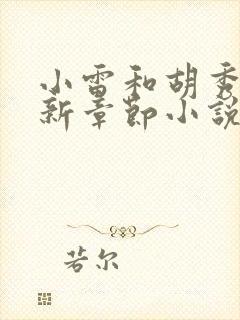 小雷和胡秀
新章节小說
若尔